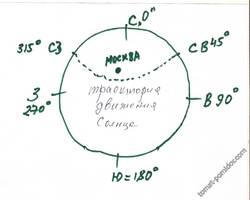 С, 0°
315° СЗ
СВ 45°
МОСКВА
З
270°
траектория
движения
Солнца
В 90°
Ю=180°
tomat-pomidor.com